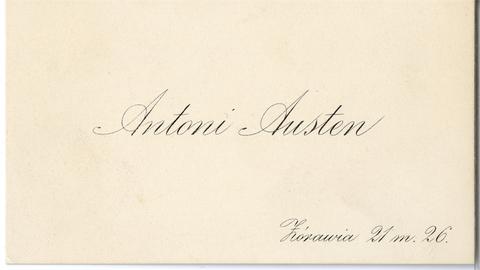 Antoni Austen
Żórawia 21 m. 26.